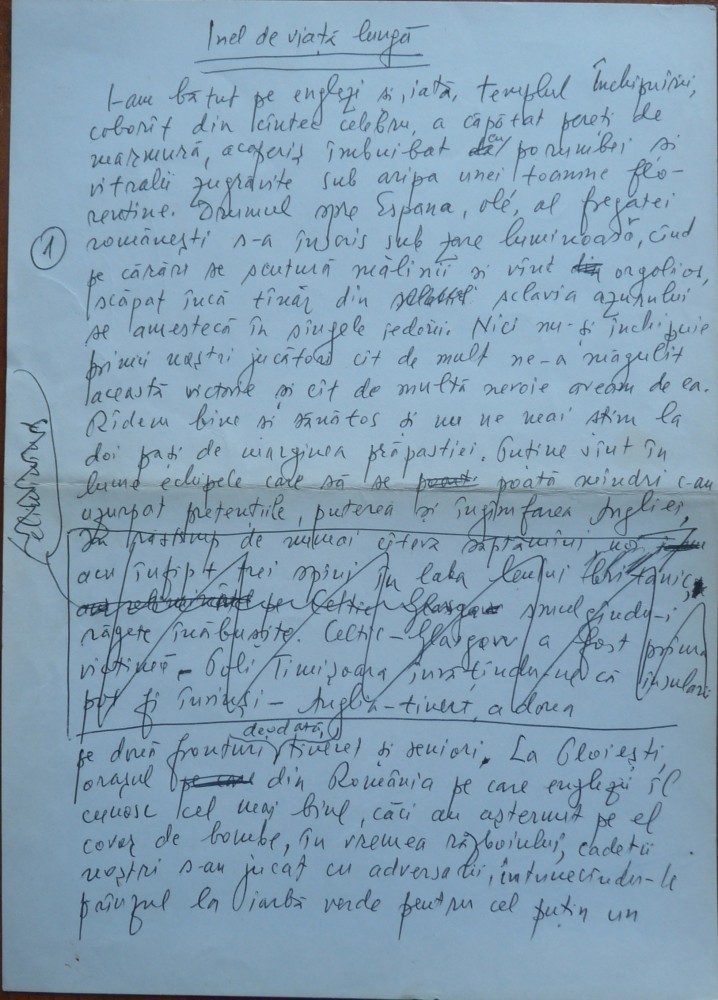 Inel de viață lungă
I-am bătut pe englezi și, iată, templul închipuirii,
coborît din cîntec celebru, a căpătat pereți de
marmură, acoperiș îmbuibat cu porumbei și
vitralii zugrăvite sub aripa unei toamne flo-
rentine. Drumul spre Espana, olé, al fregatei
1
românești s-a înscris sub zare luminoasă, cînd
pe cărări se scutură mălinii și vînt orgolios,
scăpat încă tînăr din sclavia azurului
se amestecă în sîngele iederii. Nici nu-și închipuie
primii noștri jucători cît de mult ne-a măgulit
această victorie și cît de multă nevoie aveam de ea.
Rîdem bine și sănătos și nu ne mai știm la
doi pași de marginea prăpastiei. Puține sînt în
lume echipele care să se poată mîndri c-au
uzurpat pretențiile, puterea și îngîmfarea Angliei,
În răstimp de numai cîteva săptămîni, noi
am înfipt trei spini în laba leului britanic,
pe Celtic Glasgow smulgîndu-i
răgete înăbușite. Celtic-Glasgow a fost prima
victimă - Poli Timișoara învățîndu-ne că insularii
pot fi învinși - Anglia-tineret, a doua
deodată,
pe două fronturi, tineret și seniori. La Ploiești,
orașul din România pe care englezii îl
cunosc cel mai bine, căci au așternut pe el
covor de bombe, în vremea războiului, cadeții
noștri s-au jucat cu adversarii, întunecîndu-le
prînzul la iarbă verde pentru cel puțin un